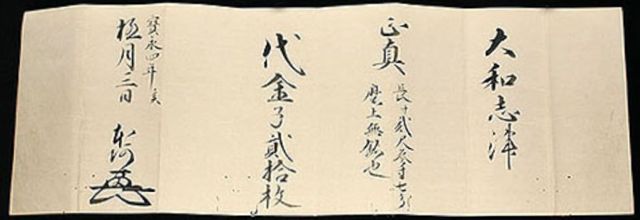 大和志津
正真
長サ貳尺寸七分
磨上無銘也
代金子貳拾枚
寶永四年亥
極月三日 本阿